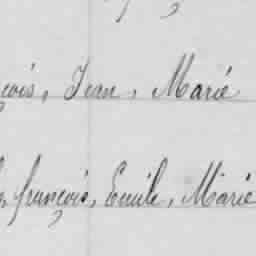 çois, Jean, Marie
, françois, Emile, Marie